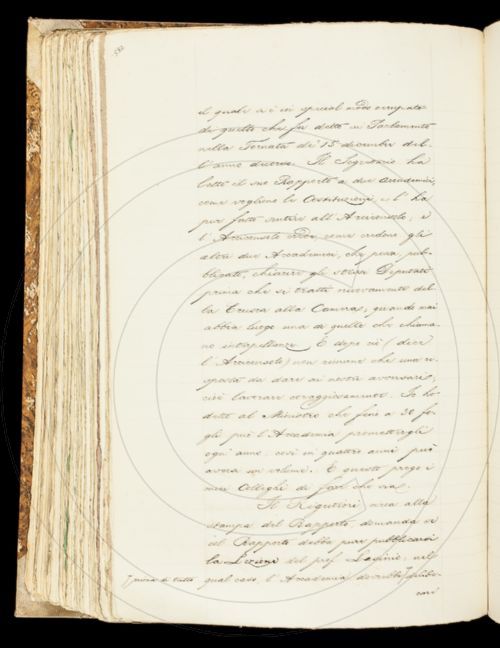 il quale si è in special modo occupato
di quello che fu detto in Parlamento
nella Tornata de' 15 dicembre del-
l'anno decorso. Il Segretario ha
letto il suo Rapporto a due Accademici,
come vogliono le Costituzioni, e l' ha
pur fatto sentire all' Arciconsolo; e
l' Arciconsolo crede, come credono gli
altri due Accademici, che possa pub-
blicarsi, chiarire gli stessi Deputati
prima che si tratti nuovamente del-
la Crusca alla Camera, quando mai
abbia luogo una di quelle che chiama-
no interpellanze. E dopo ciò (dice
l' Arciconsolo) non rimane che una ri-
sposta da dare ai nostri avversari,
cioè lavorare coraggiosamente. Io ho
detto al Ministro che fino a 30 fo-
gli può l' Accademia promettergli
ogni anno, così in quattro anni può
aversi un volume. E questo prego i
miei Colleghi di far che sia.
Il Rigutini, circa alla
stampa del Rapporto, domanda se
col Rapporto debba pure pubblicarsi
la Lezione del prof. Lasinio, nel
prima di tutto
qual caso, l' Accademia dovrebbe delibe-
rare